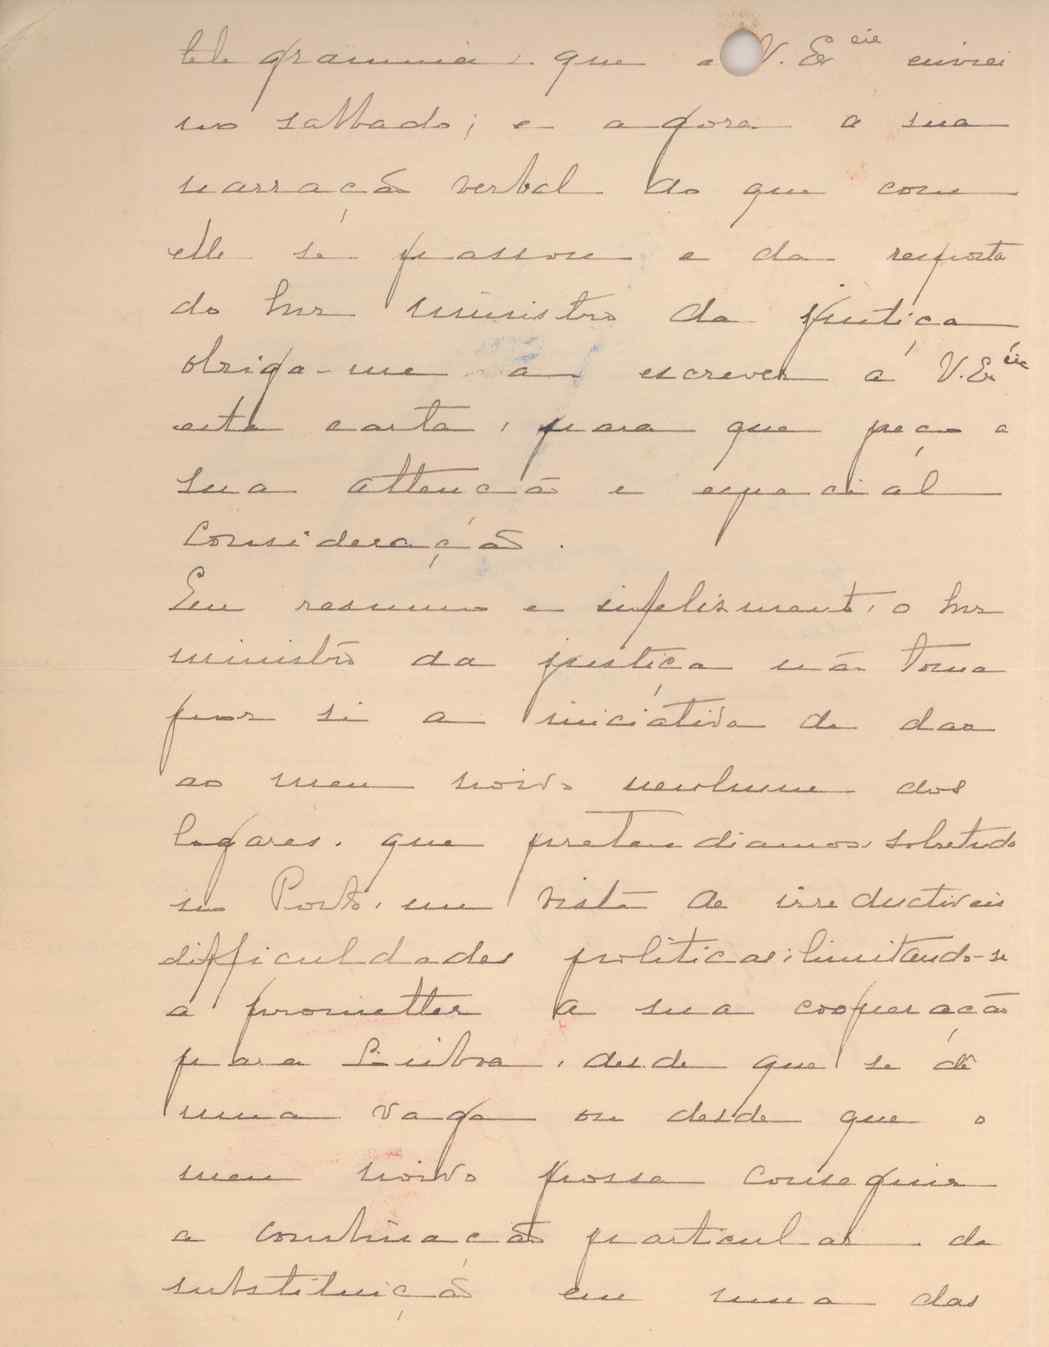 telegramma, que a V. Ex cia enviei
no sabbado; e agora a sua
narração verbal do que com
elle se passou e da resposta
do Snr ministro da justiça
obriga-me a escrever á V. Ex cia
esta carta, para que peço a
sua attenção e especial
consideração.
Em resumo e infelizmente, o Snr
ministro da justiça não toma
por si a iniciativa de dar
ao meu noivo nenhum dos
logares, que pretendiamos, sobretudo
no Porto, em vista de irreductiveis
difficuldades politicas; limitando-se
a prometter a sua cooperação
para Lisboa, desde que se dê
uma vaga ou desde que o
meu noivo possa conseguir
a combinação particular de
substituição em uma das